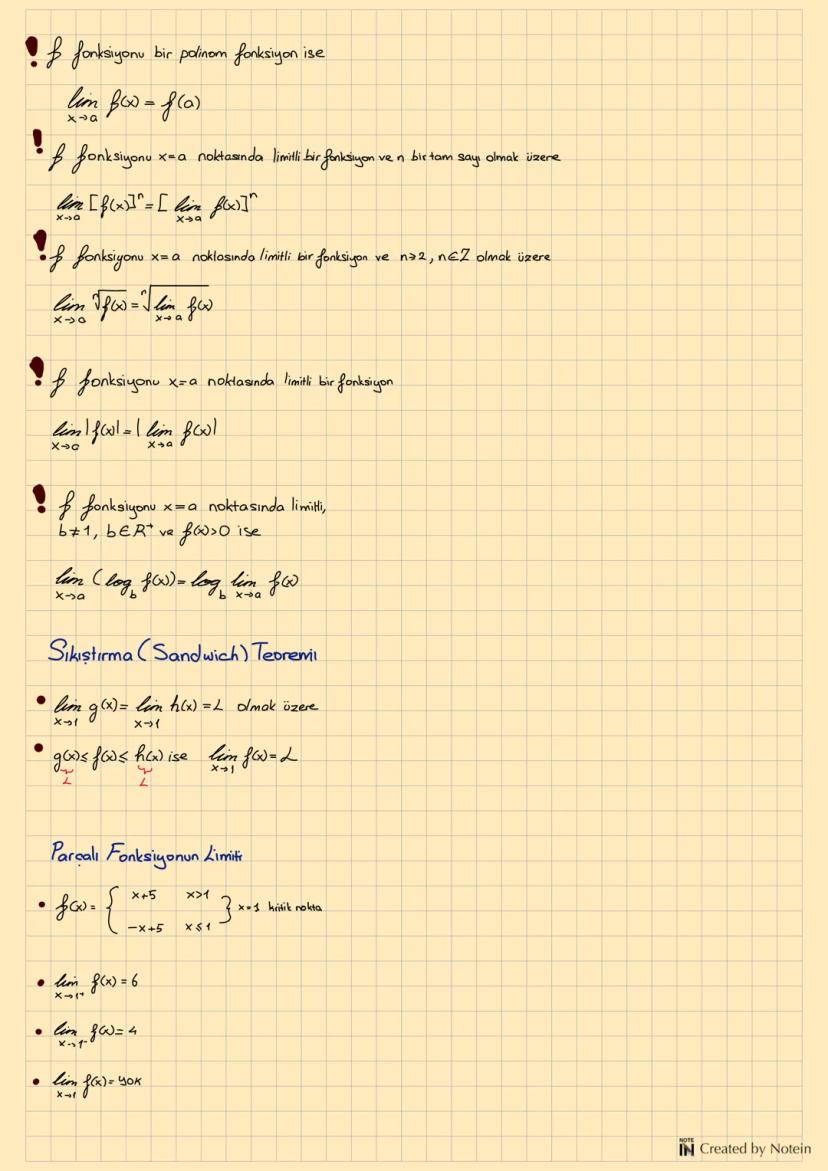 ! f fonksiyonu bir polinom fonksiyon ise
lim x→a f(x) = f(a)
! f fonksiyonu x=a noktasında limitli bir fonksiyon ve n bir tam sayı olmak üzere
lim x→a [f(x)]ⁿ = [lim x→a f(x)]ⁿ
! f fonksiyonu x=a noktasında limitli bir fonksiyon ve n≥2, n∈Z olmak üzere
lim x→a ⁿ√f(x) = ⁿ√lim x→a f(x)
! f fonksiyonu x=a noktasında limitli bir fonksiyon
lim x→a |f(x)| = |lim x→a f(x)|
! f fonksiyonu x=a noktasında limitli,
b≠1, b∈R⁺ ve f(x)>0 ise
lim x→a (log_b f(x)) = log_b lim x→a f(x)
Sıkıştırma (Sandwich) Teoremi
• lim x→1 g(x) = lim x→1 h(x) = L olmak üzere
• g(x) ≤ f(x) ≤ h(x) ise lim x→1 f(x) = L
L L
Parçalı Fonksiyonun Limiti
• f(x) = { x+5 x>1
-x+5 x≤1 } x=1 kritik nokta
• lim x→1⁺ f(x) = 6
• lim x→1⁻ f(x) = 4
• lim x→1 f(x) = yok
NOTE IN Created by Notein